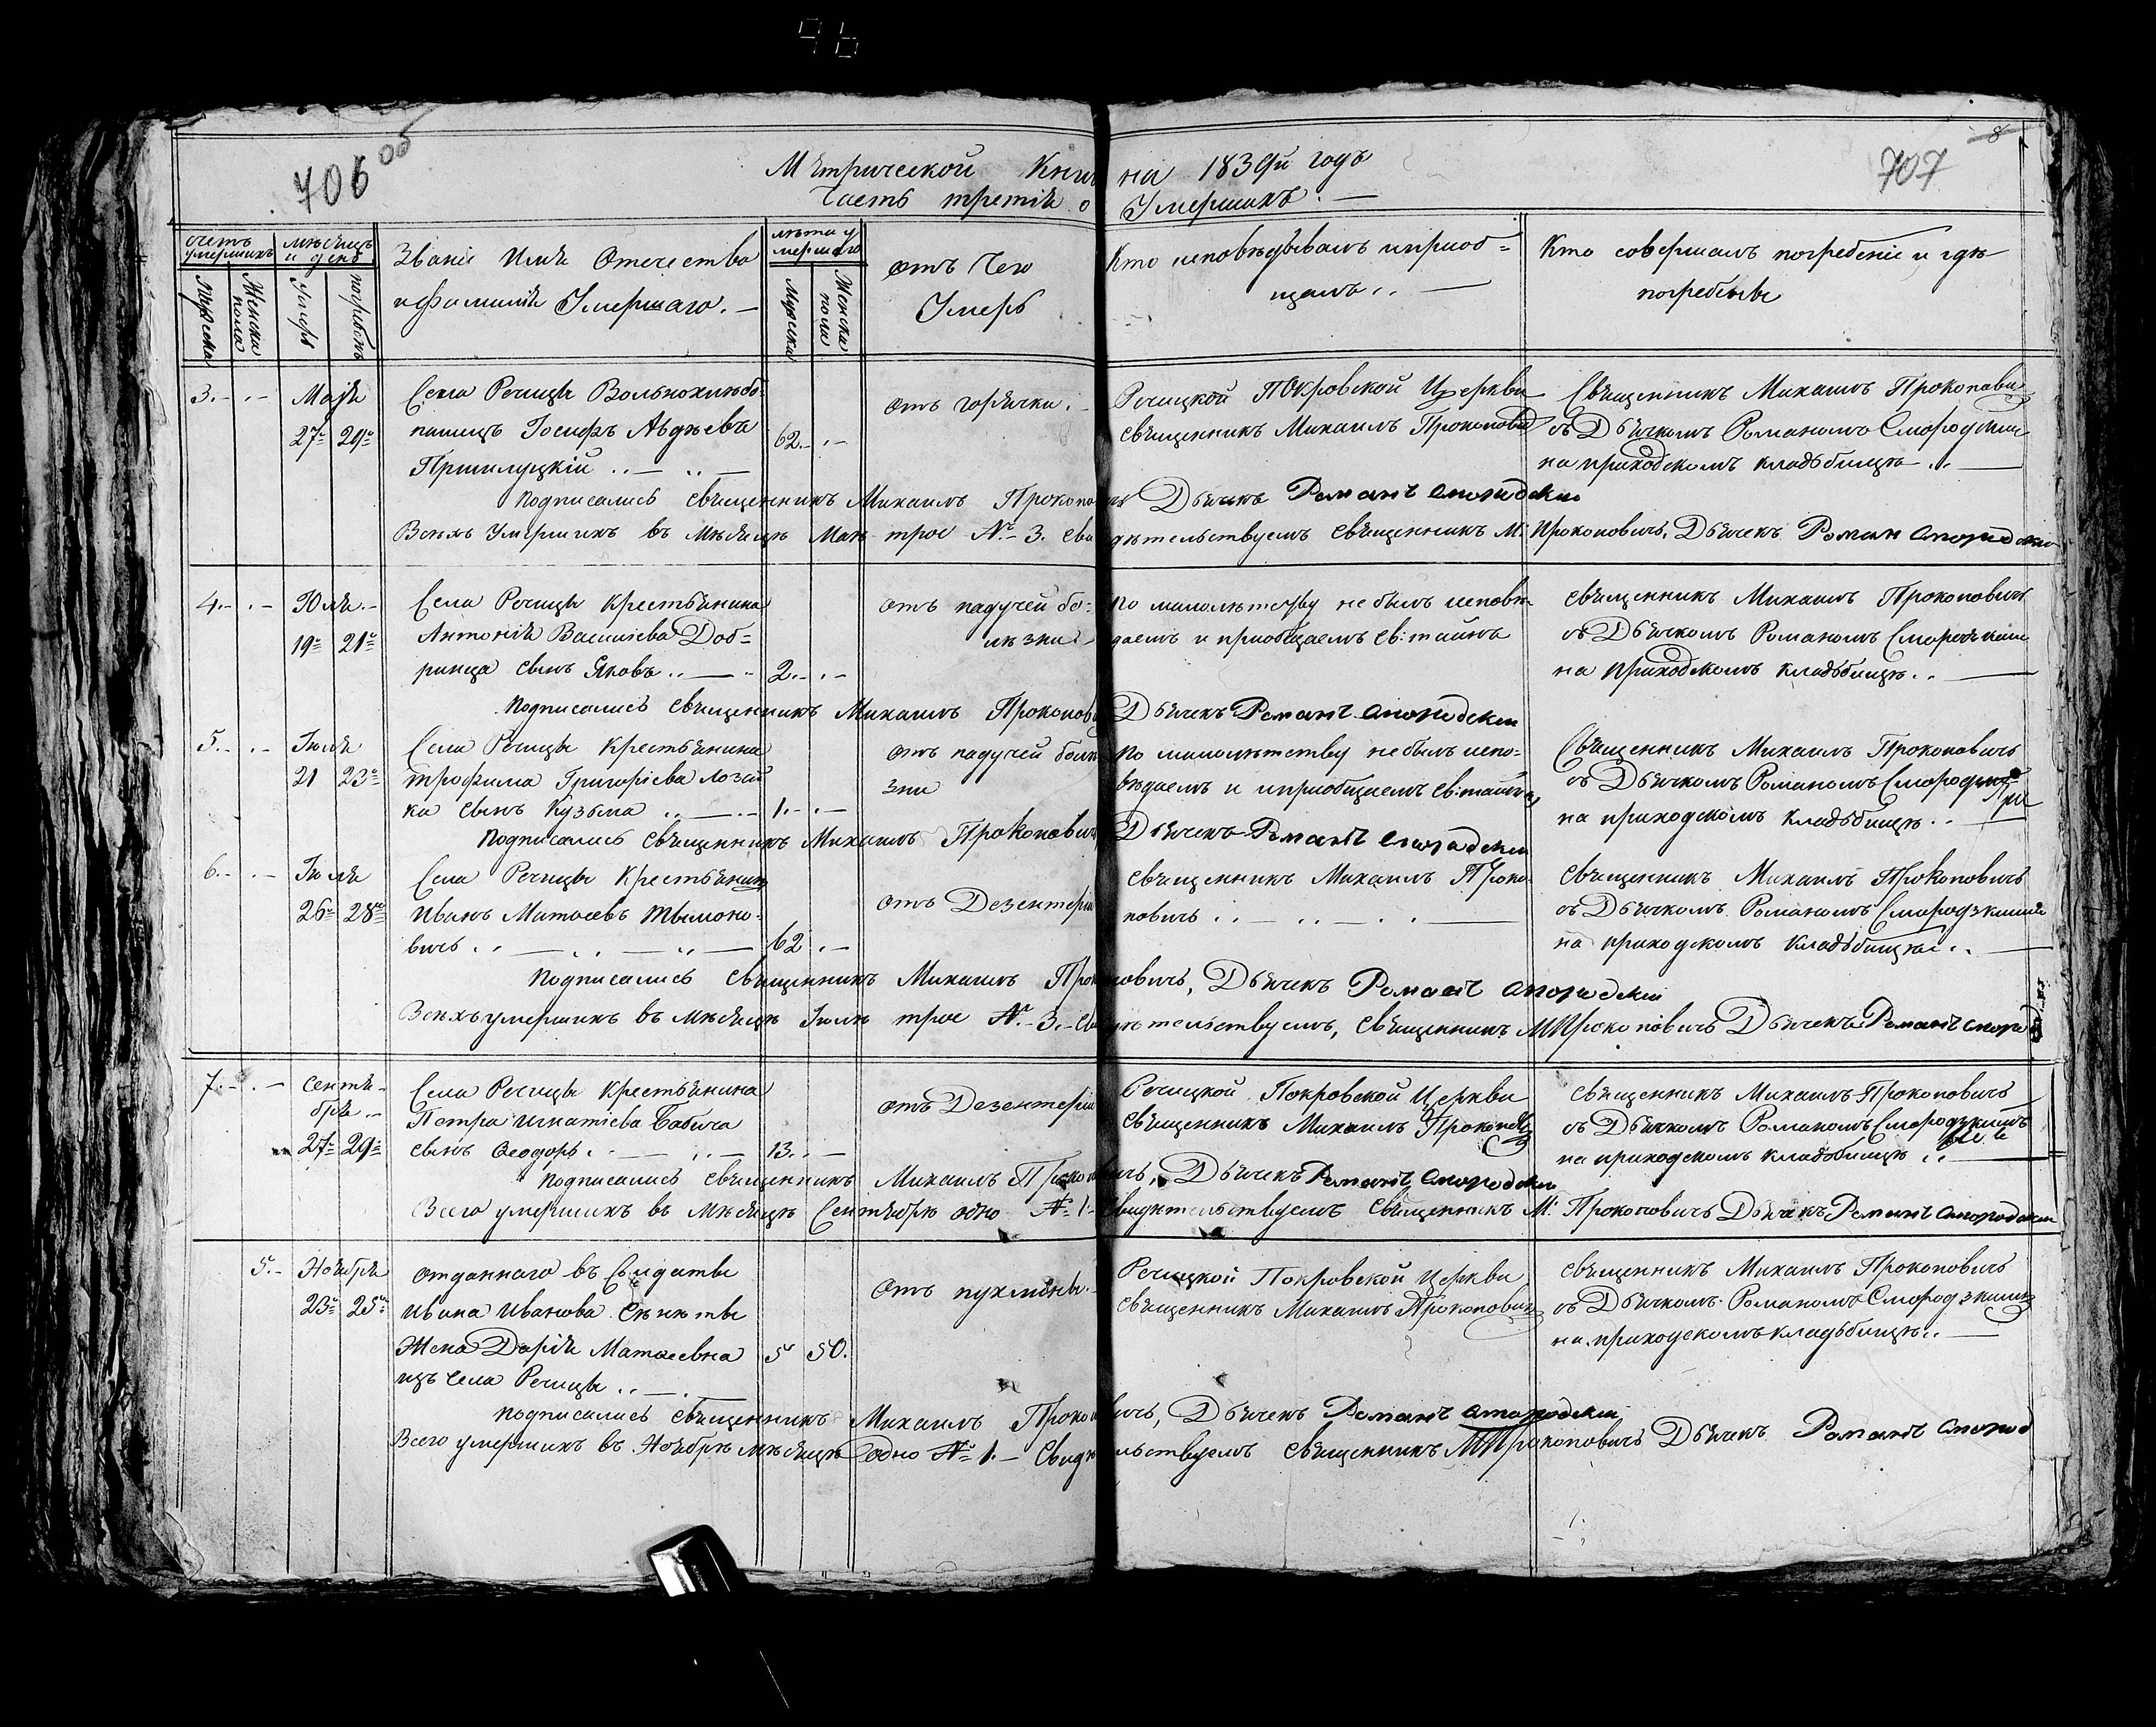 706 об
707
Метрической Книги на 1839й годъ
Часть третія о Умершихъ. —
счетъ умершихъ
Мужеска
Женска пола
мѣсяцъ и день
Умеръ
погребенъ
Званіе Имя Отечество
и фамилія Умершаго. —
лѣта умершаго
Мужеска
Женска пола
отъ чего
Умеръ
Кто исповѣдывалъ и приоб=
щалъ
Кто совершалъ погребеніе и гдѣ
погребены
3. Маія
27 29
Села Речицы Вольнохлѣбо-
пашецъ Іосифъ Авдѣевъ
Пршилуцкій
62
отъ горячки.
Речицкой Покровской Церкви
священникъ Михаилъ Прокопович
Священникъ Михаилъ Прокопович
съ Дьячкомъ Романомъ
на приходскомъ кладьбищѣ
Подписались священникъ Михаилъ Прокопович Дьячекъ Романъ
Всѣхъ умершихъ въ Мѣсяцѣ Маѣ трое № 3. свидѣтельствуемъ священникъ М: Прокоповичъ, Дьячекъ Роман
4. Юля
19 21
Села Речицы крестьянина
Антонія Василіева Доб=
ринца сынъ Яковъ
2.
отъ падучей бо=
лѣзни
по малолѣтству не былъ исповѣ-
даемъ и приобщаемъ св: таинъ
священникъ Михаилъ Прокоповичъ
съ Дьячкомъ Романомъ
на приходскомъ кладьбищѣ
Подписались священникъ Михаилъ Прокопович Дьячекъ Романъ
5. Іюля
21 23
Села Речицы крестьянина
трофима Григоріева лозей
ка сынъ Кузьма
1.
отъ падучей болѣ
зни
по малолѣтству не былъ испо=
вѣдаемъ и приобщаемъ св: таинъ
Священникъ Михаилъ Прокоповичъ
съ Дьячкомъ Романомъ
на приходскомъ кладьбищѣ
Подписались священникъ Михаилъ Прокопович Дьячекъ Романъ
6. Іюля
26 28
Села Речицы Крестьянинъ
Иванъ Матѳеевъ Тымоно-
вичъ
62
отъ Дезентеріи
священникъ Михаилъ Проко-
повичъ
священникъ Михаилъ Прокоповичъ
съ Дьячкомъ Романомъ
на приходскомъ кладьбищѣ
Подписались священникъ Михаилъ Прокоповичъ, Дьячекъ Романъ
Всѣхъ умершихъ въ мѣсяцѣ Іюлѣ трое № 3. свидѣтельствуемъ, священникъ М Прокоповичъ Дьячекъ Романъ
7. Сентя-
бря
27 29
Села Речицы крестьянина
Петра Игнатіева Бабича
сынъ Ѳеодоръ
13.
отъ Дезентеріи
Речицкой Покровской Церкви
священникъ Михаилъ Прокопович
священникъ Михаилъ Прокоповичъ
съ Дьячкомъ Романомъ
на приходскомъ кладьбищѣ
Подписались священникъ Михаилъ Прокоповичъ, Дьячекъ Романъ
Всего умершихъ въ Мѣсяцѣ Сентябрѣ одно № 1 свидѣтельствуемъ священникъ М: Прокоповичъ Дьячекъ Романъ
5. Ноября
23 25
отданнаго въ Солдаты
Ивана Иванова
Жена Дарія Матѳеевна
изъ Села Речицы
50.
отъ пухлины.
Речицкой Покровской Церкви
священникъ Михаилъ Прокопович
священникъ Михаилъ Прокоповичъ
съ Дьячкомъ Романомъ
на приходскомъ кладьбищѣ
Подписались священникъ Михаилъ Прокоповичъ, Дьячекъ Романъ
Всего умершихъ въ Ноябрѣ мѣсяцѣ одно № 1. Свидѣтельствуемъ священникъ М Прокоповичъ Дьячекъ Романъ